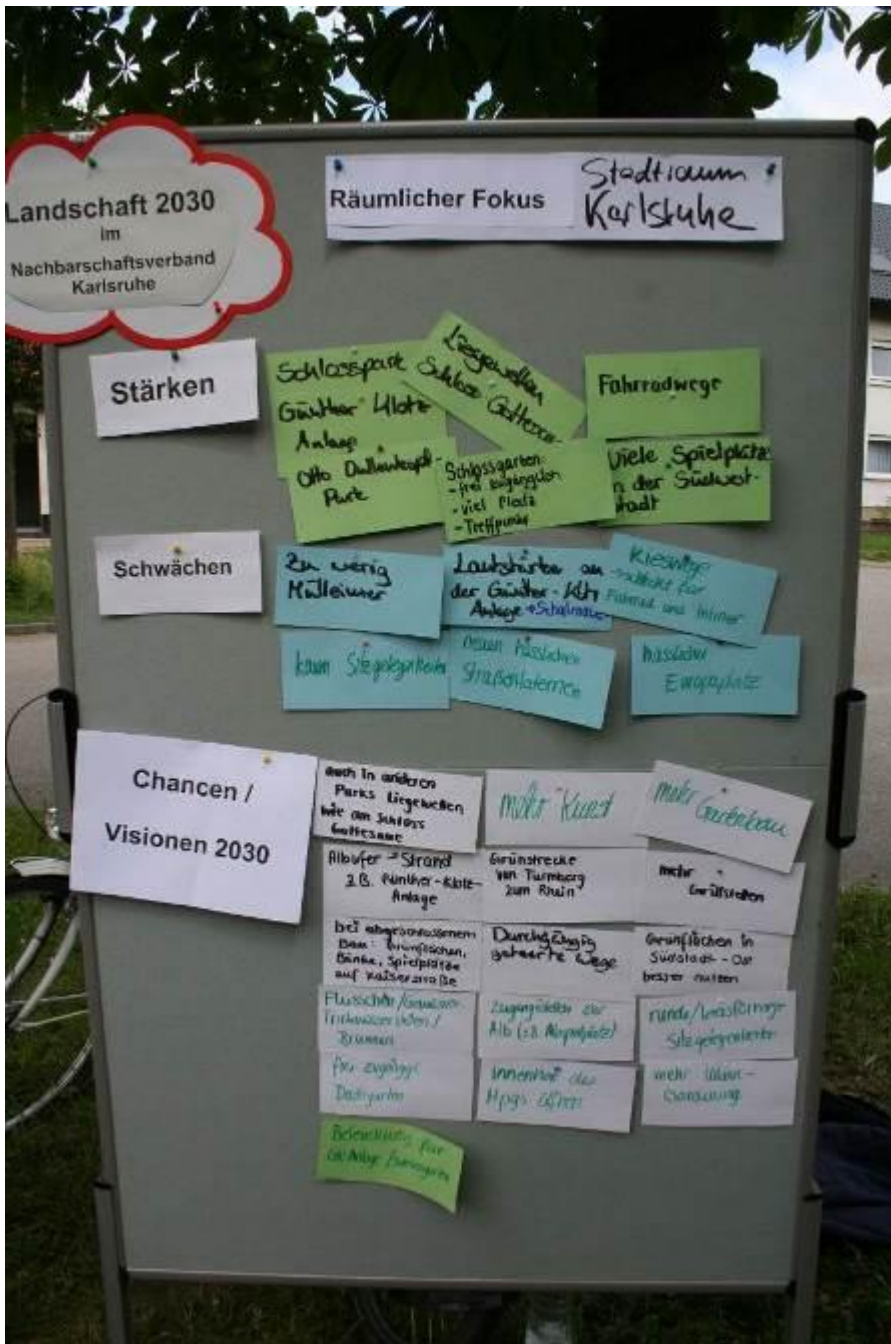 Landschaft 2030
im
Nachbarschaftsverband
Karlsruhe
Räumlicher Fokus
Stadtraum
Karlsruhe
Stärken
Schlosspark
Günther Klotz
Anlage
Otto Dullenkopf-
Park
Liegewellen
Schloss Gottesaue
Schlossgarten:
- frei zugänglich
- viel Platz
- Treffpunkt
Fahrradwege
Viele Spielplätze
in der Südwest-
stadt
Schwächen
Zu wenig
Mülleimer
Lautstärke an
der Günther-Klotz
Anlage
Kieswege
-schlecht für
Fahrrad und Inliner
kaum Sitzgelegenheiten
neuen hässlichen
Straßenlaternen
hässlicher
Europaplatz
Chancen /
Visionen 2030
auch in anderen
Parks Liegewellen
wie am Schloss
Gottesaue
mehr Kunst
mehr Gartenbau
Albufer - Strand
z.B. Günther-Klotz-
Anlage
Grünstrecke
von Turmberg
zum Rhein
mehr
Grillstellen
bei abgeschlossenem
Bau: Grünflächen,
Bänke, Spielplätze
auf Kaiserstraße
Durchgängig
geteerte Wege
Grünflächen in
Südstadt - Ost
besser nutzen
Trinkwasserstellen /
Brunnen
Zugangsstellen zur
Alb
runde/kreisförmige
Sitzgelegenheiten
frei zugängl.
Dachgärten
Innenhof des
öffnen
mehr
Beleuchtung für